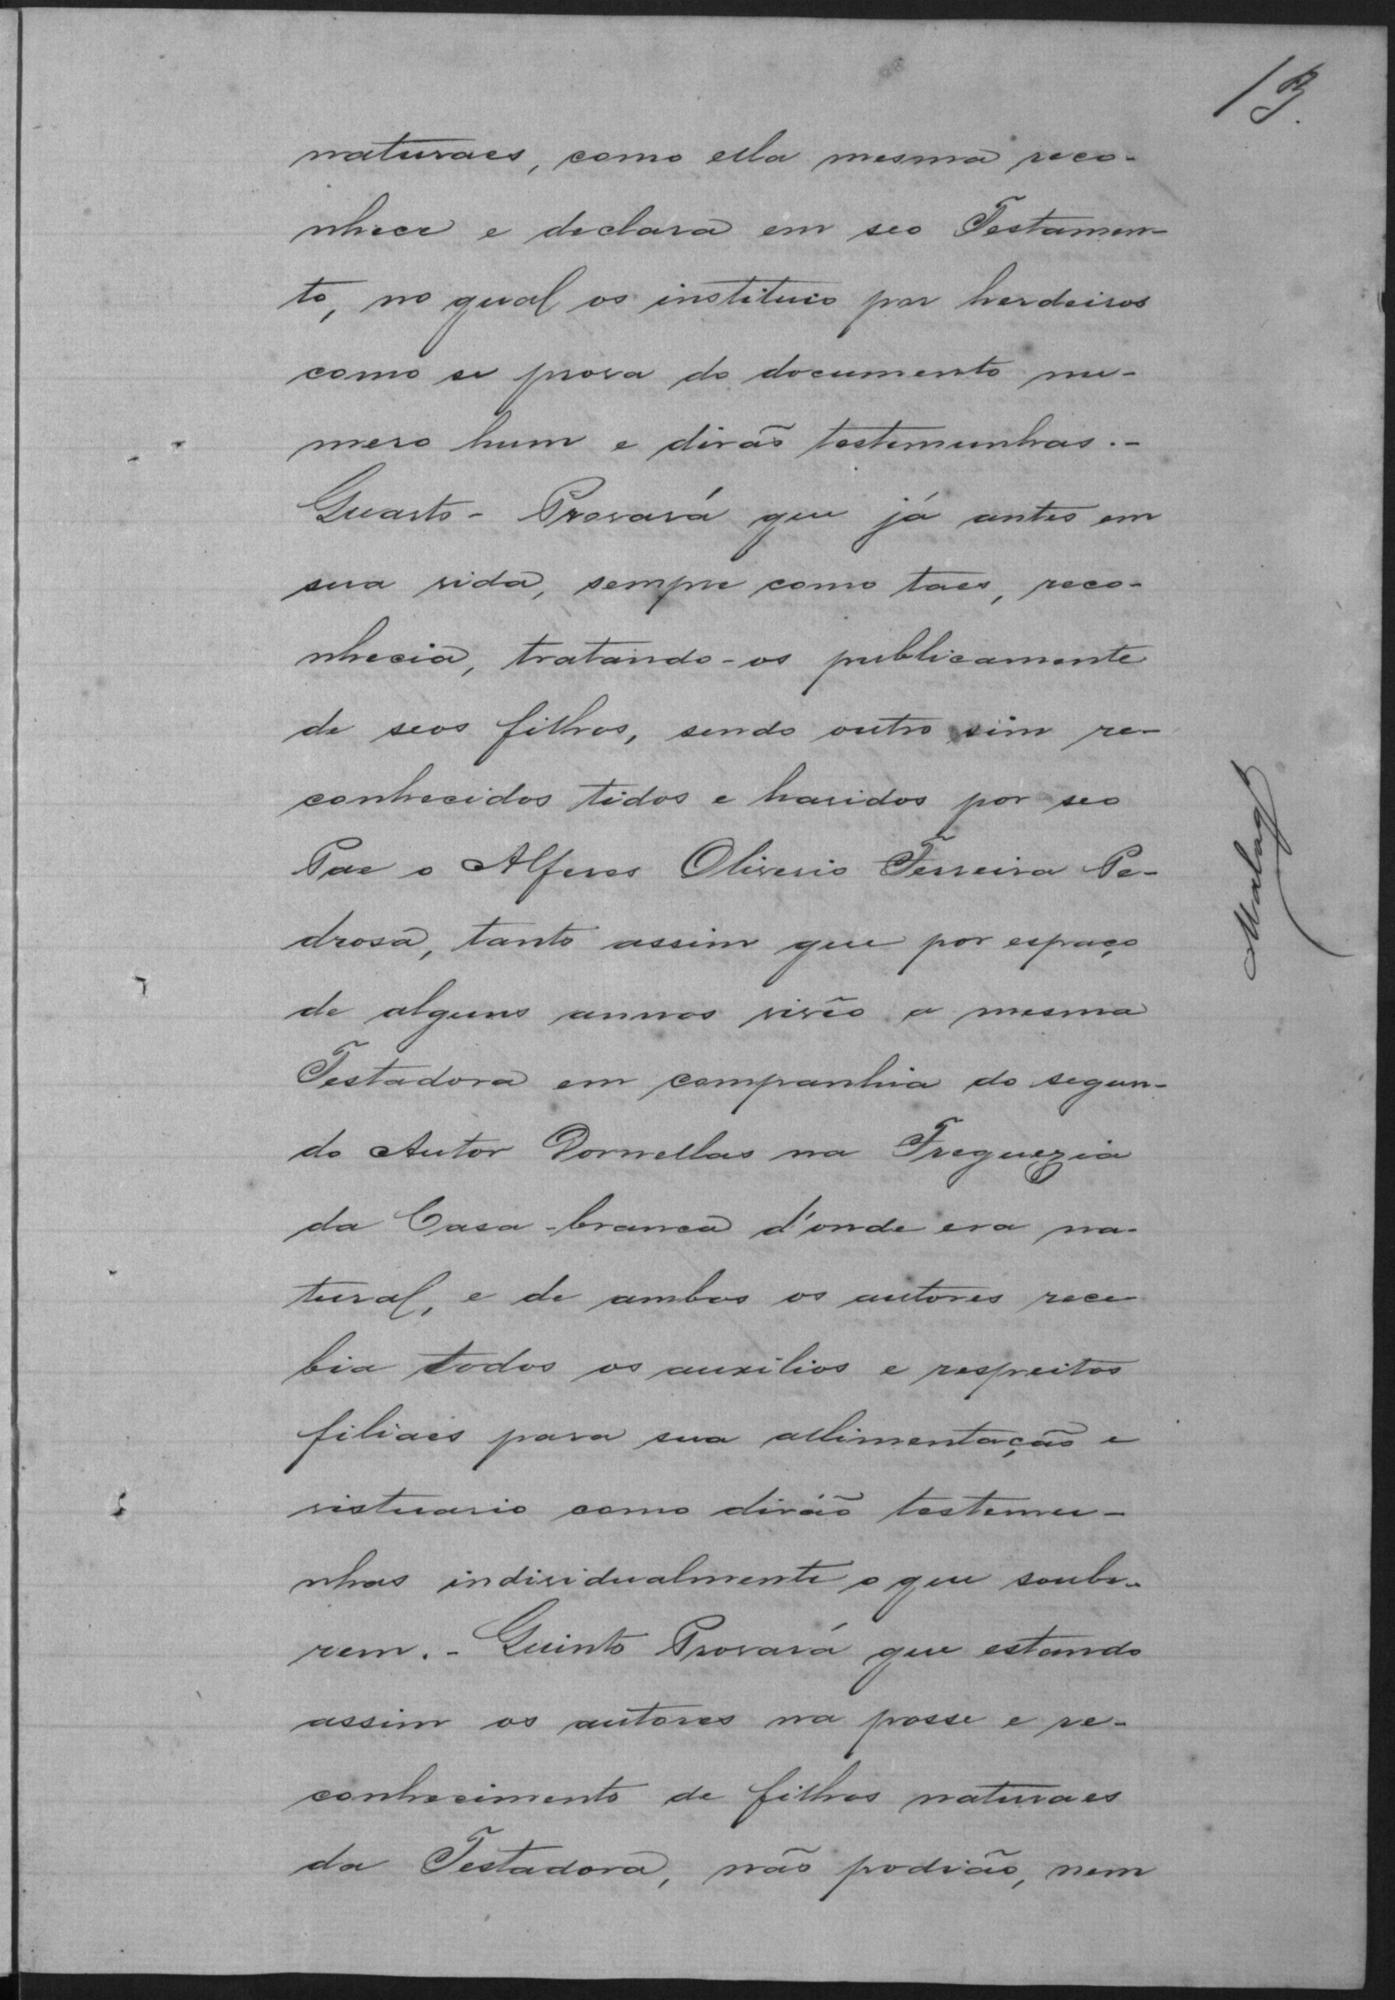 13.
naturaes, como ella mesma reco-
nhece e declara em seo Testamen-
to, no qual os instituio por herdeiros
como se prova do documento nu-
mero hum e dirão testemunhas.-
Quarto - Provará que já antes em
sua vida, sempre como taes, reco-
nhecia, tratando-os publicamente
de seos filhos, sendo outro sim re-
conhecidos tidos e havidos por seo
Pae o Alferes Oliverio Ferreira Pe-
drosa, tanto assim que por espaço
de alguns annos viveo a mesma
Testadora em companhia do segun-
do Autor Dornellas na Freguezia
da Casa-branca d'onde era na-
tural, e de ambos os autores rece-
bia todos os auxilios e respeitos
filiaes para sua allimentação e
vistuario como dirão testemu-
nhas individualmente o que soube-
rem. - Quinto Provará que estando
assim os autores na posse e re-
conhecimento de filhos naturaes
da Testadora, não podião, nem